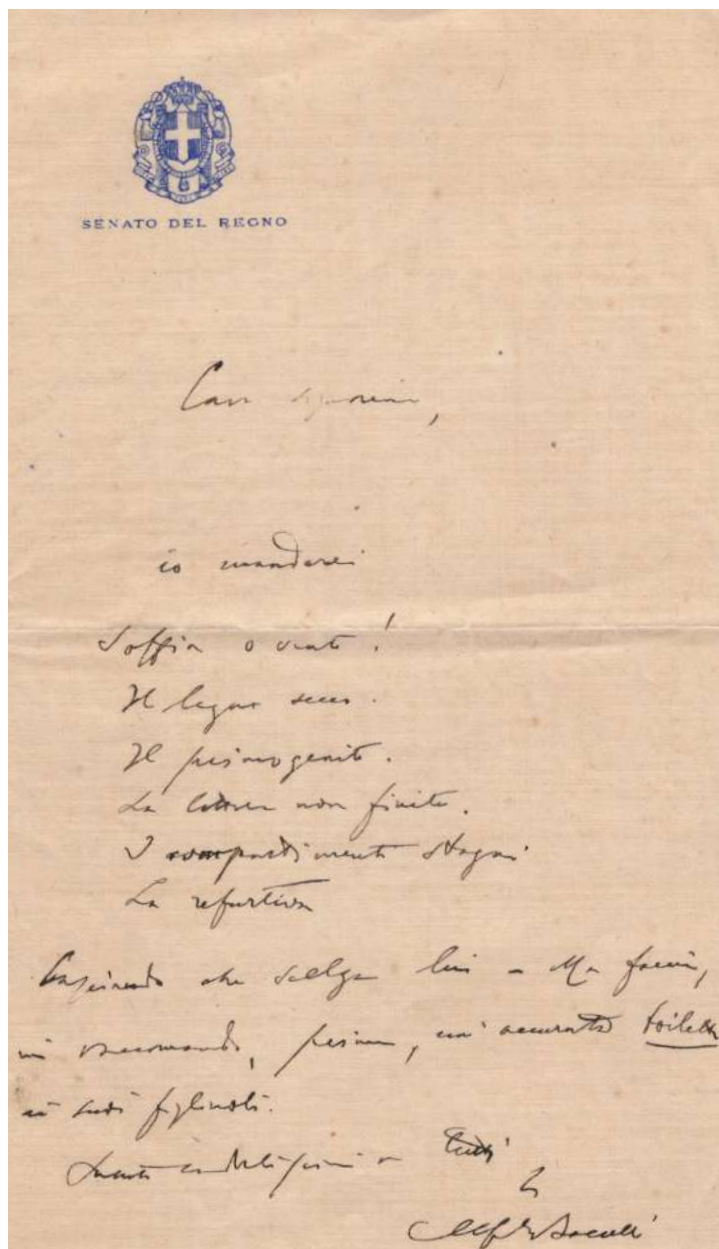 SENATO DEL REGNO
Cara signorina,
io manderei
Soffia o vento!
Il legno secco.
Il primogenito.
La lettera non finita.
I compartimenti stagni
La refurtiva
che scelga lui - Ma faccia,
mi raccomando, prima, un'accurata toilette
ai suoi figliuoli.
a tutti